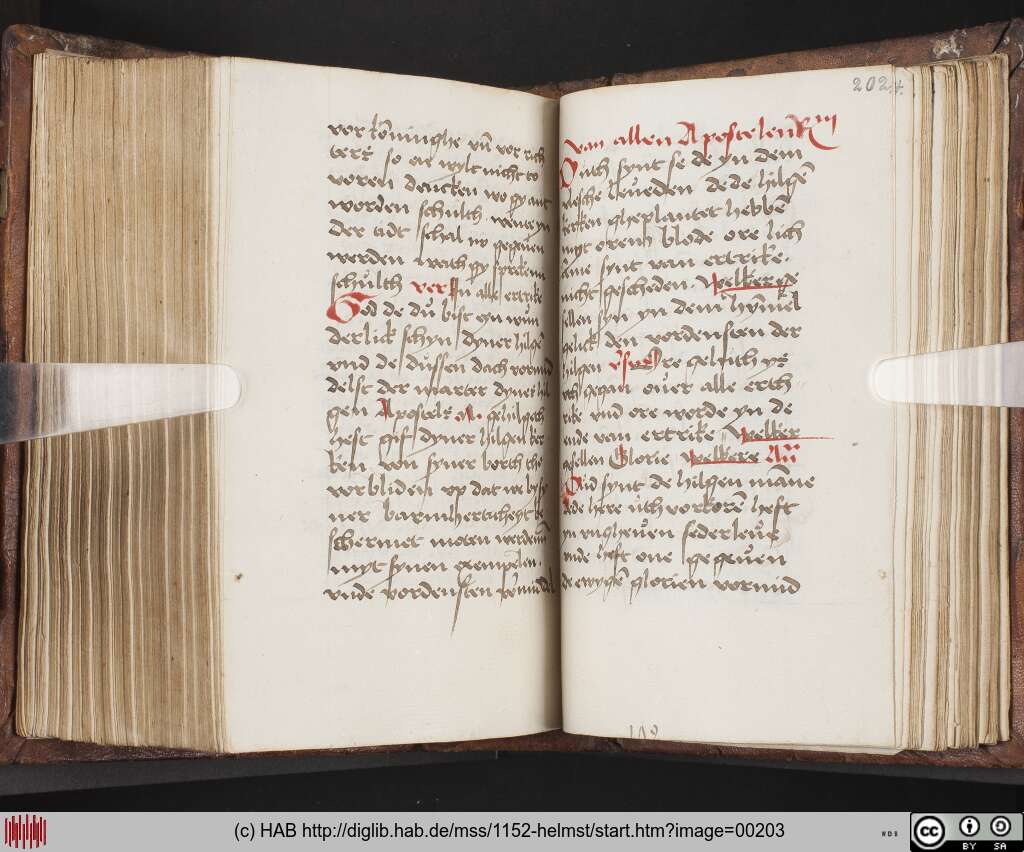 vor konninghe vn̄ vor rich
ters so en wylt nicht to
voren dencken wo gy ant
worden schulth wente yn
der tidt schal iw gegeuen
werden wath gy spreken
schulth vers In alle ertrike
God de du bist eyn wun
derlick schyn dyner hilgē
vnd de dussen dach vormid
delst der marter dyner hil
gen Apostels .N. gehilgeth
hefst gif dyner hilgen ker
ken von syner borch the
vorbliden vp dat we by sy
ner barmherticheyt be
schermet moten werden
myt synen exempelen.
vnde vordensten vormiddel
202
van allen Apostelen R iii
Dith synt se de yn dem
vlesche leueden de de hilgē
kerken gheplantet hebbē
myt orem blode ore lich
ame synt van ertrike.
nicht gescheden. Welker ge
sellen syn yn dem hymmel
gelick den vordensten der
hilgen vsus Ore geluth ys
vth gegan ouer alle erth
rike vnd ore worde yn de
ende van ertrike Welker
gesellen Glorie Welkere Au
Dud synt de hilgen manne
de de here uth vorkoren heft
yn vngheuen feder leue
vnde heft one gegeuen
de ewygē glorien vormid
(c) HAB http://diglib.hab.de/mss/1152-helmst/start.htm?image=00203
WDB
cc BY SA